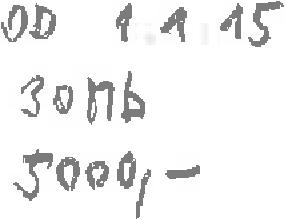 OD 1.1.15
30Mb
5000,-